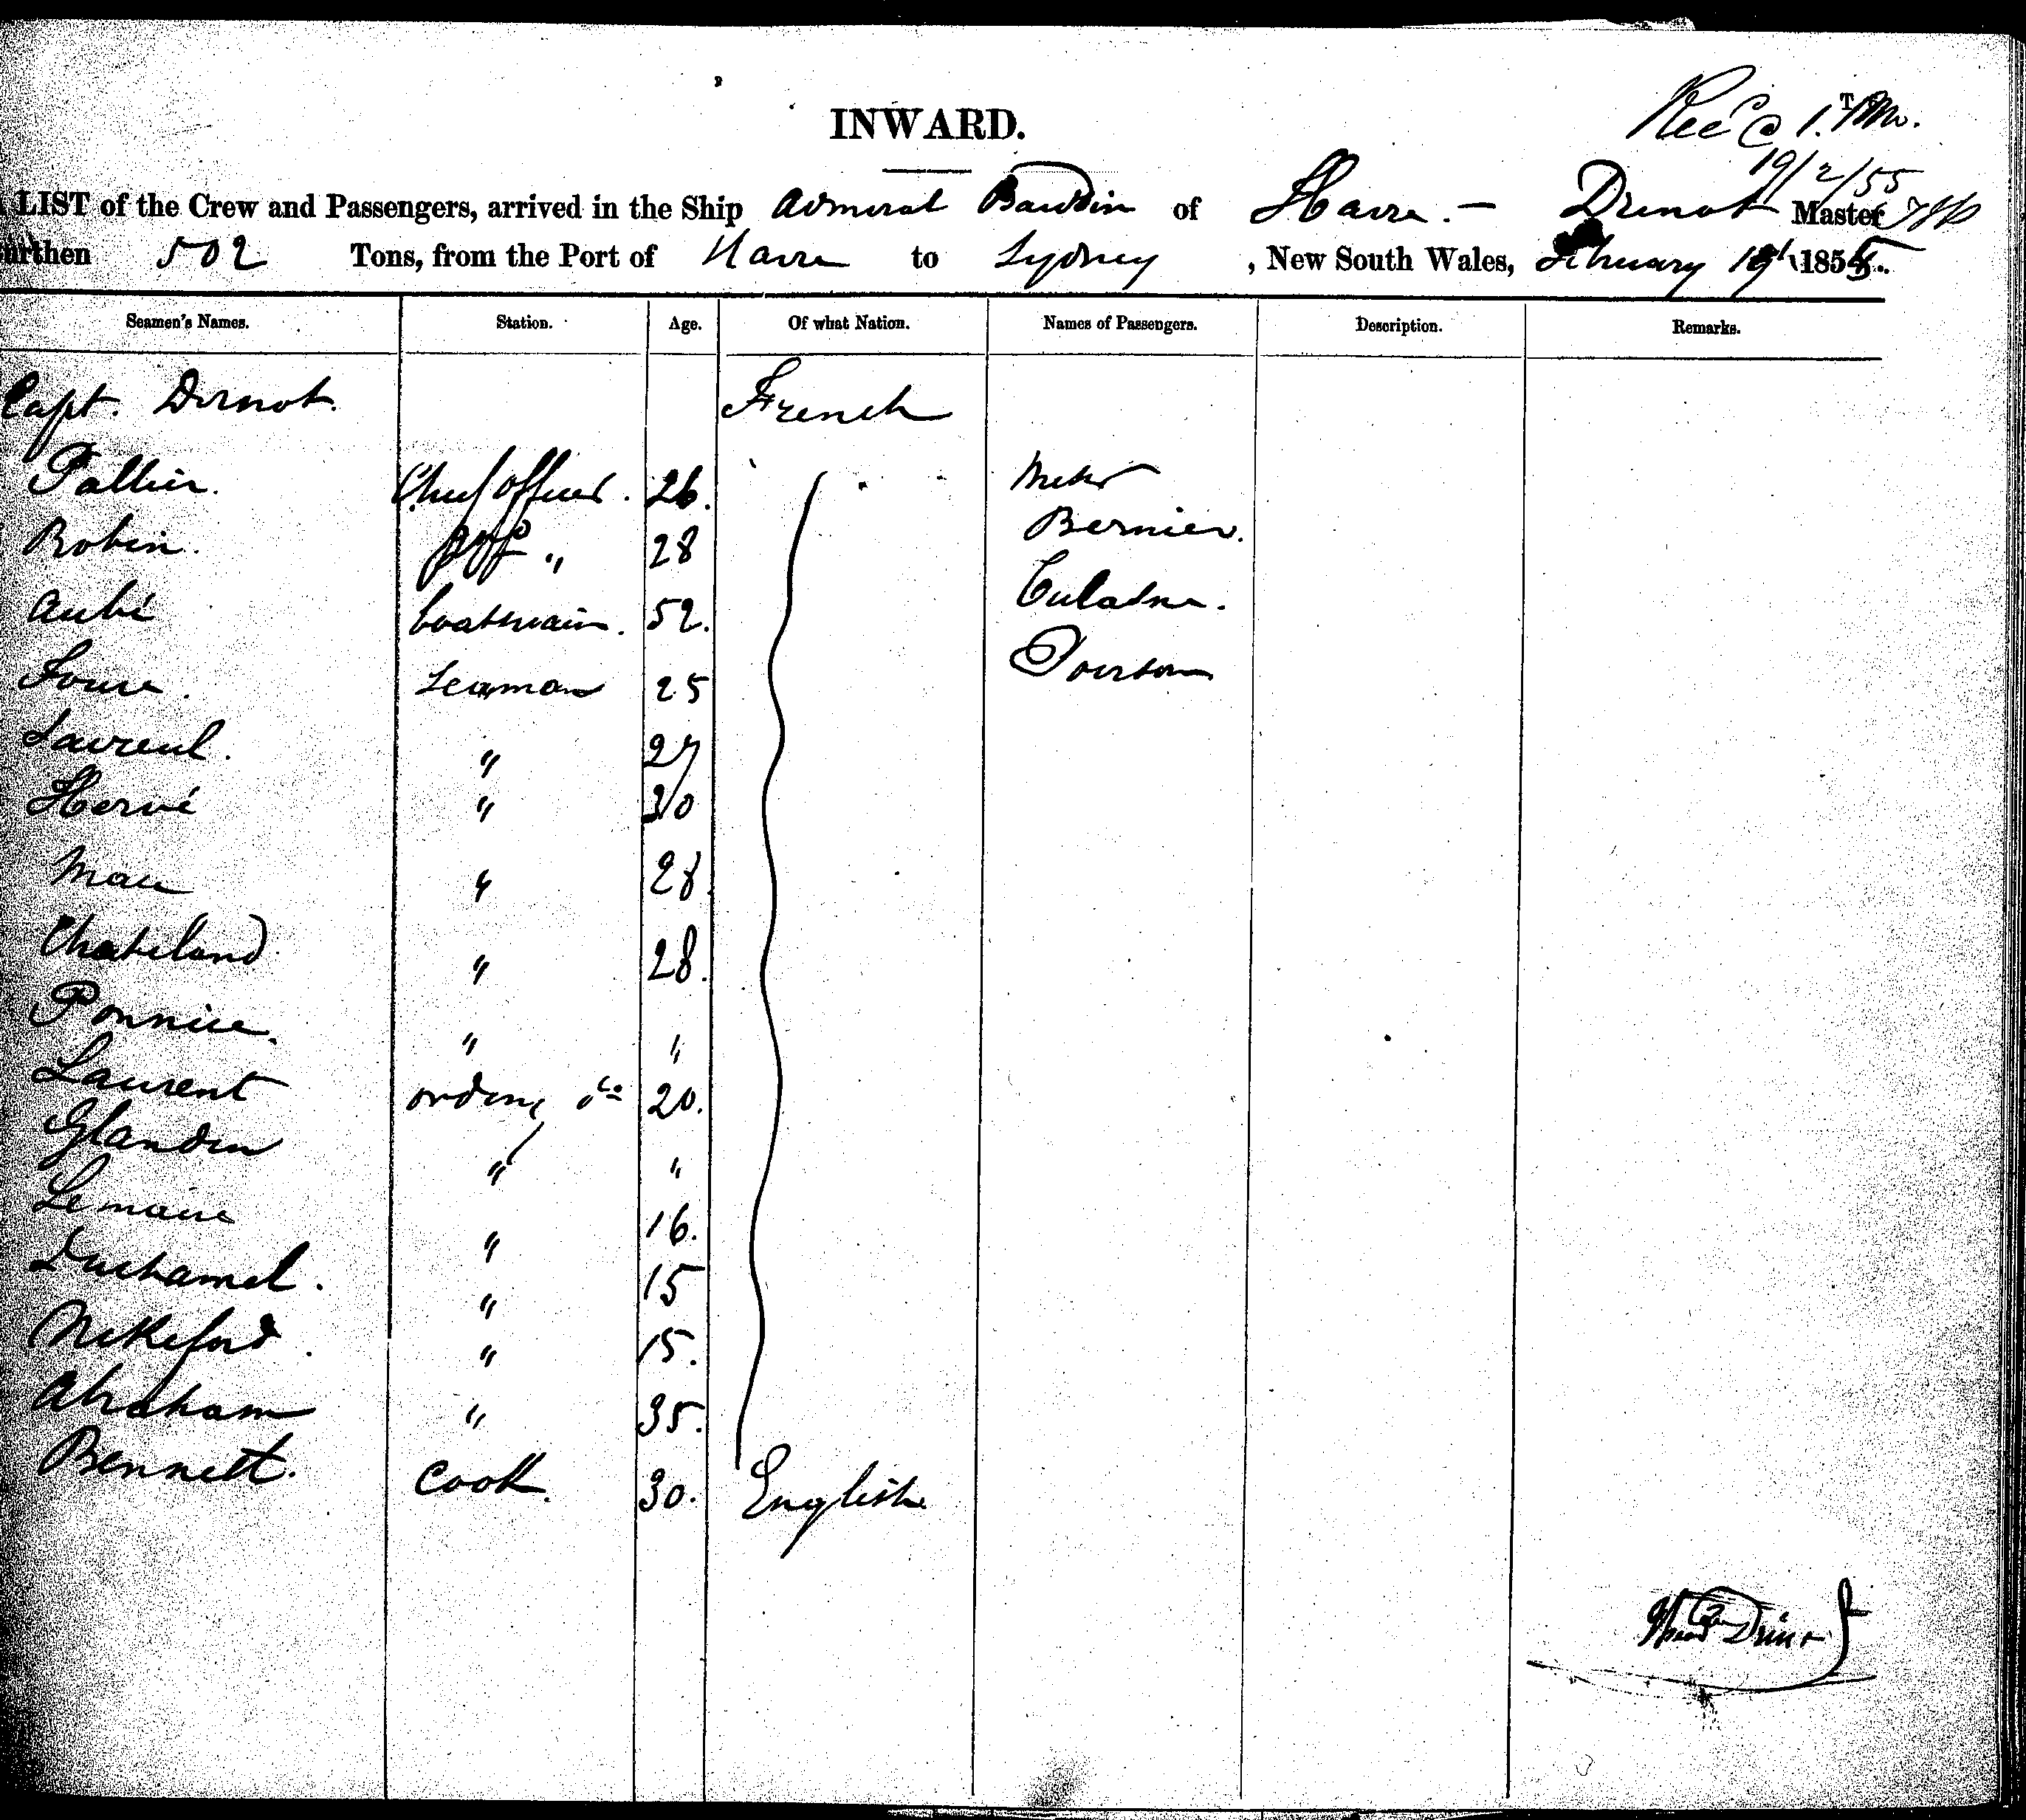 INWARD.
Rec @ 1. PM.
19/2/55
LIST of the Crew and Passengers, arrived in the Ship Admiral Baudin of Havre. — Drinot Master
urthen 502 Tons, from the Port of Havre to Sydney, New South Wales, February 19th 1855.
Seamen's Names. Station. Age. Of what Nation. Names of Passengers. Description. Remarks.
Capt. Drinot. French
Pallier. Chief Officer. 26.
Robin. " 28 Bernier.
Aubé boatswain. 52.
Seaman 25
Laurent. " 27
Hervé " 30
" 28.
Chateland " 28.
" "
Laurent 20.
Glandin " "
Lemaire " 16.
Duchamel. " 15
" 15.
Abraham " 35.
Bennett. Cook. 30. English
Drinot